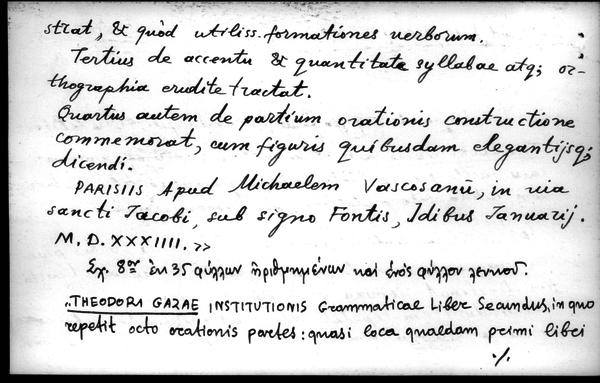 strat, & quòd utiliss. formationes verborum.
Tertius de accentu & quantitate syllabae atq; or-
thographia erudite tractat.
Quartus autem de partium orationis constructione
commemorat, cum figuris quibusdam elegantijsq;
dicendi.
PARISIIS Apud Michaelem Vascosanū, in via
sancti Jacobi, sub signo Fontis, Idibus Januarij.
M. D. XXXIIII. >>
Σχ. 8ον ἐκ 35 φύλλων ἠριθμημένων καὶ ἑνὸς φύλλου λευκοῦ.
"THEODORI GAZAE INSTITUTIONIS Grammaticae Liber Secundus, in quo
repetit octo orationis partes: quasi loca quaedam primi libri
./.